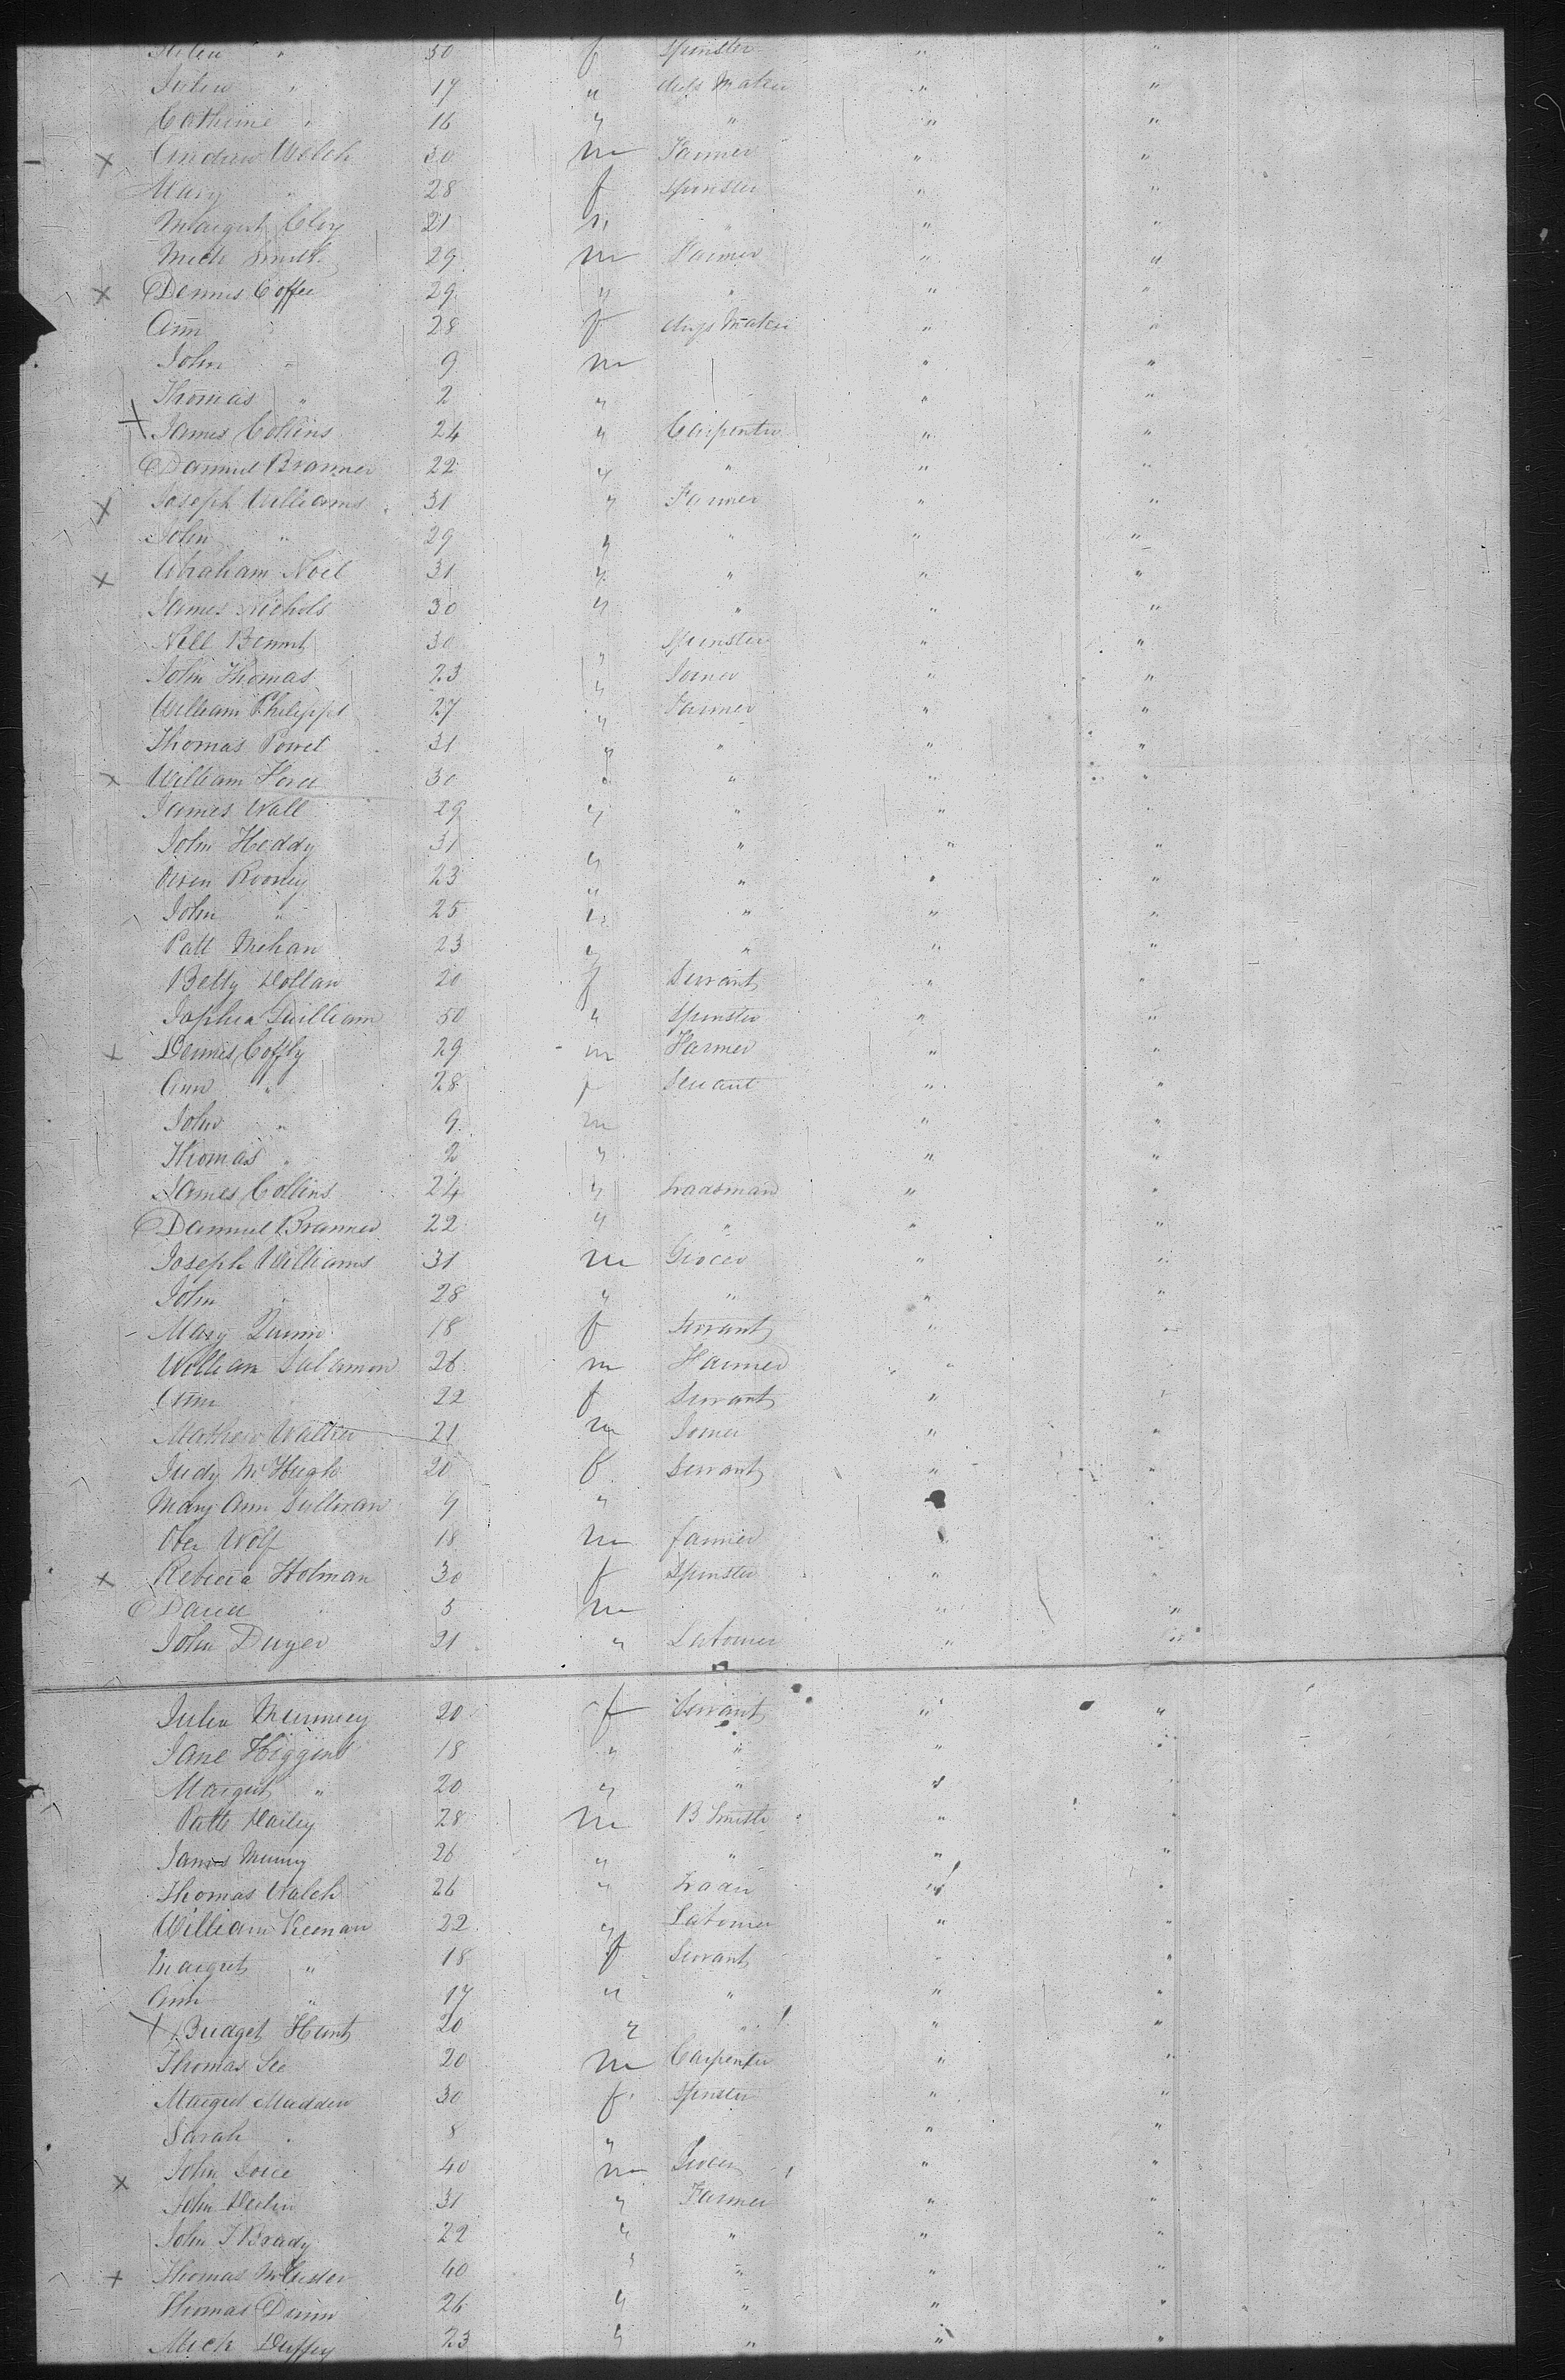 Helen " 30 f Spinster " "
Julia " 17 " dress Maker " "
Catherine " 16 " " " "
x Andrew Welch 30 m Farmer " "
Mary " 28 f Spinster " "
Margret Cloy 21 " " " "
Mich Smith 29 m Farmer " "
x Dennis Coffee 29 " " " "
Ann " 28 f dress Maker " "
John " 9 m " "
Thomas " 2 " " "
x James Collins 24 " Carpenter " "
Danniel Branner 22 " " " "
x Joseph Williams 31 " Farmer " "
John " 29 " " " "
x Abraham Noel 31 " " " "
James Nichols 30 " " " "
Nell Bennet 30 " Spinster " "
John Thomas 23 " Joiner " "
William Philipps 27 " Farmer " "
Thomas Powel 31 " " " "
x William Hore 30 " " " "
James Wall 29 " " " "
John Heddy 31 " " " "
Owen Rooney 23 " " " "
John " 25 " " " "
Patt Mehan 23 " " " "
Betty Dollan 20 f Servant " "
Sophia Quilliam 50 " Spinster " "
x Dennis Coffly 29 m Farmer " "
Ann " 28 f Servant " "
John " 9 m " "
Thomas " 2 " " "
James Collins 24 " tradsman " "
Danniel Branner 22 " " " "
Joseph Williams 31 m Grocer " "
John " 28 " " " "
Mary Quinn 18 f Servant " "
William Salamon 26 m Farmer " "
Ann " 22 f Servant " "
Mathew Walker 21 m Joiner " "
Judy McHugh 20 f Servant " "
Mary Ann Sullivan 9 " " "
Ober Wolf 18 m farmer " "
x Rebecca Holman 30 f Spinster " "
David " 5 m " "
John Dwyer 21 " Labourer " "
Julia 20 f Servant " "
Jane Higgins 18 " " " "
Margret " 20 " " " "
Patt Dailey 28 m B Smith " "
James Murray 26 " " " "
Thomas Walch 26 " trader " "
William Keenan 22 " Labourer " "
Margret " 18 f Servant " "
Ann " 17 " " " "
x Bridget Hunt 20 " " " "
Thomas Lee 20 m Carpenter " "
Margret Madden 30 f Spinster " "
Sarah " 8 " " "
x John Joice 40 m Grocer " "
John Devlin 31 " Farmer " "
John T Brady 22 " " " "
x Thomas 40 " " " "
Thomas Dunn 26 " " " "
Mick Duffey 23 " " " "